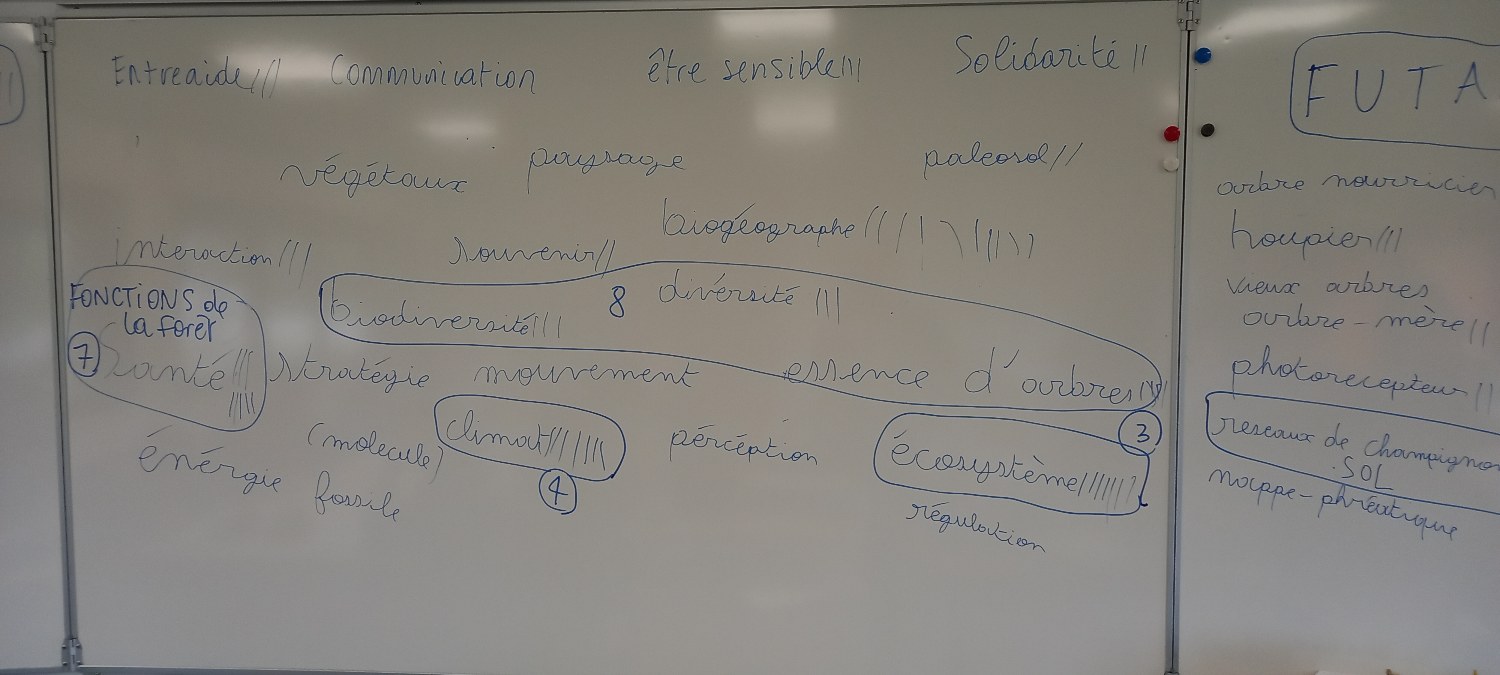 Entreaide /// Communication être sensible |||| Solidarité ||
végétaux paysage paleosol //
interaction //// souvenir // biogéographe
FONCTIONS de la forêt
biodiversité ||| 8 diversité |||
7 santé stratégie mouvement essence d'arbres
énérgie (molecule) climat pércéption écosystème 3
fossile 4 régulation
FUTA
arbre nourricier
houpier ///
vieux arbres
arbre-mère ||
photorecepteur ||
reseaux de champignon
. SOL
nappe-phréatique